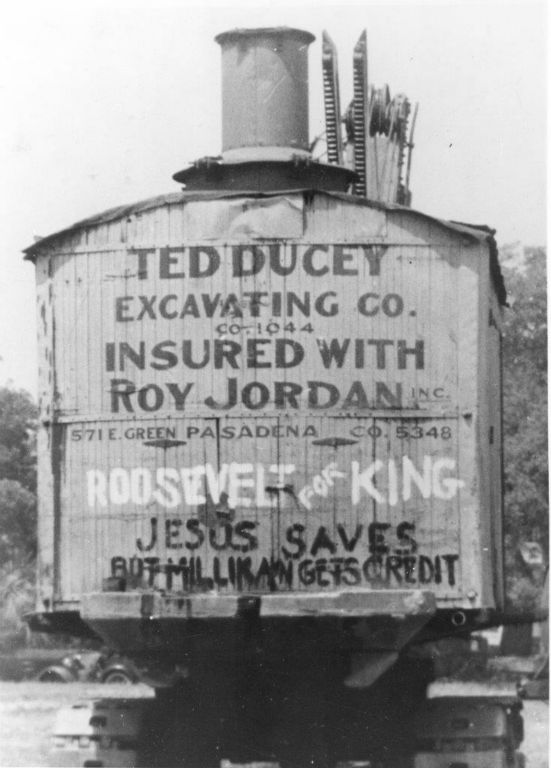 TED DUCEY
EXCAVATING CO.
CO. 1044
INSURED WITH
ROY JORDAN INC.
571 E. GREEN PASADENA CO. 5348
ROOSEVELT FOR KING
JESUS SAVES
BUT MILLIKAN GETS CREDIT